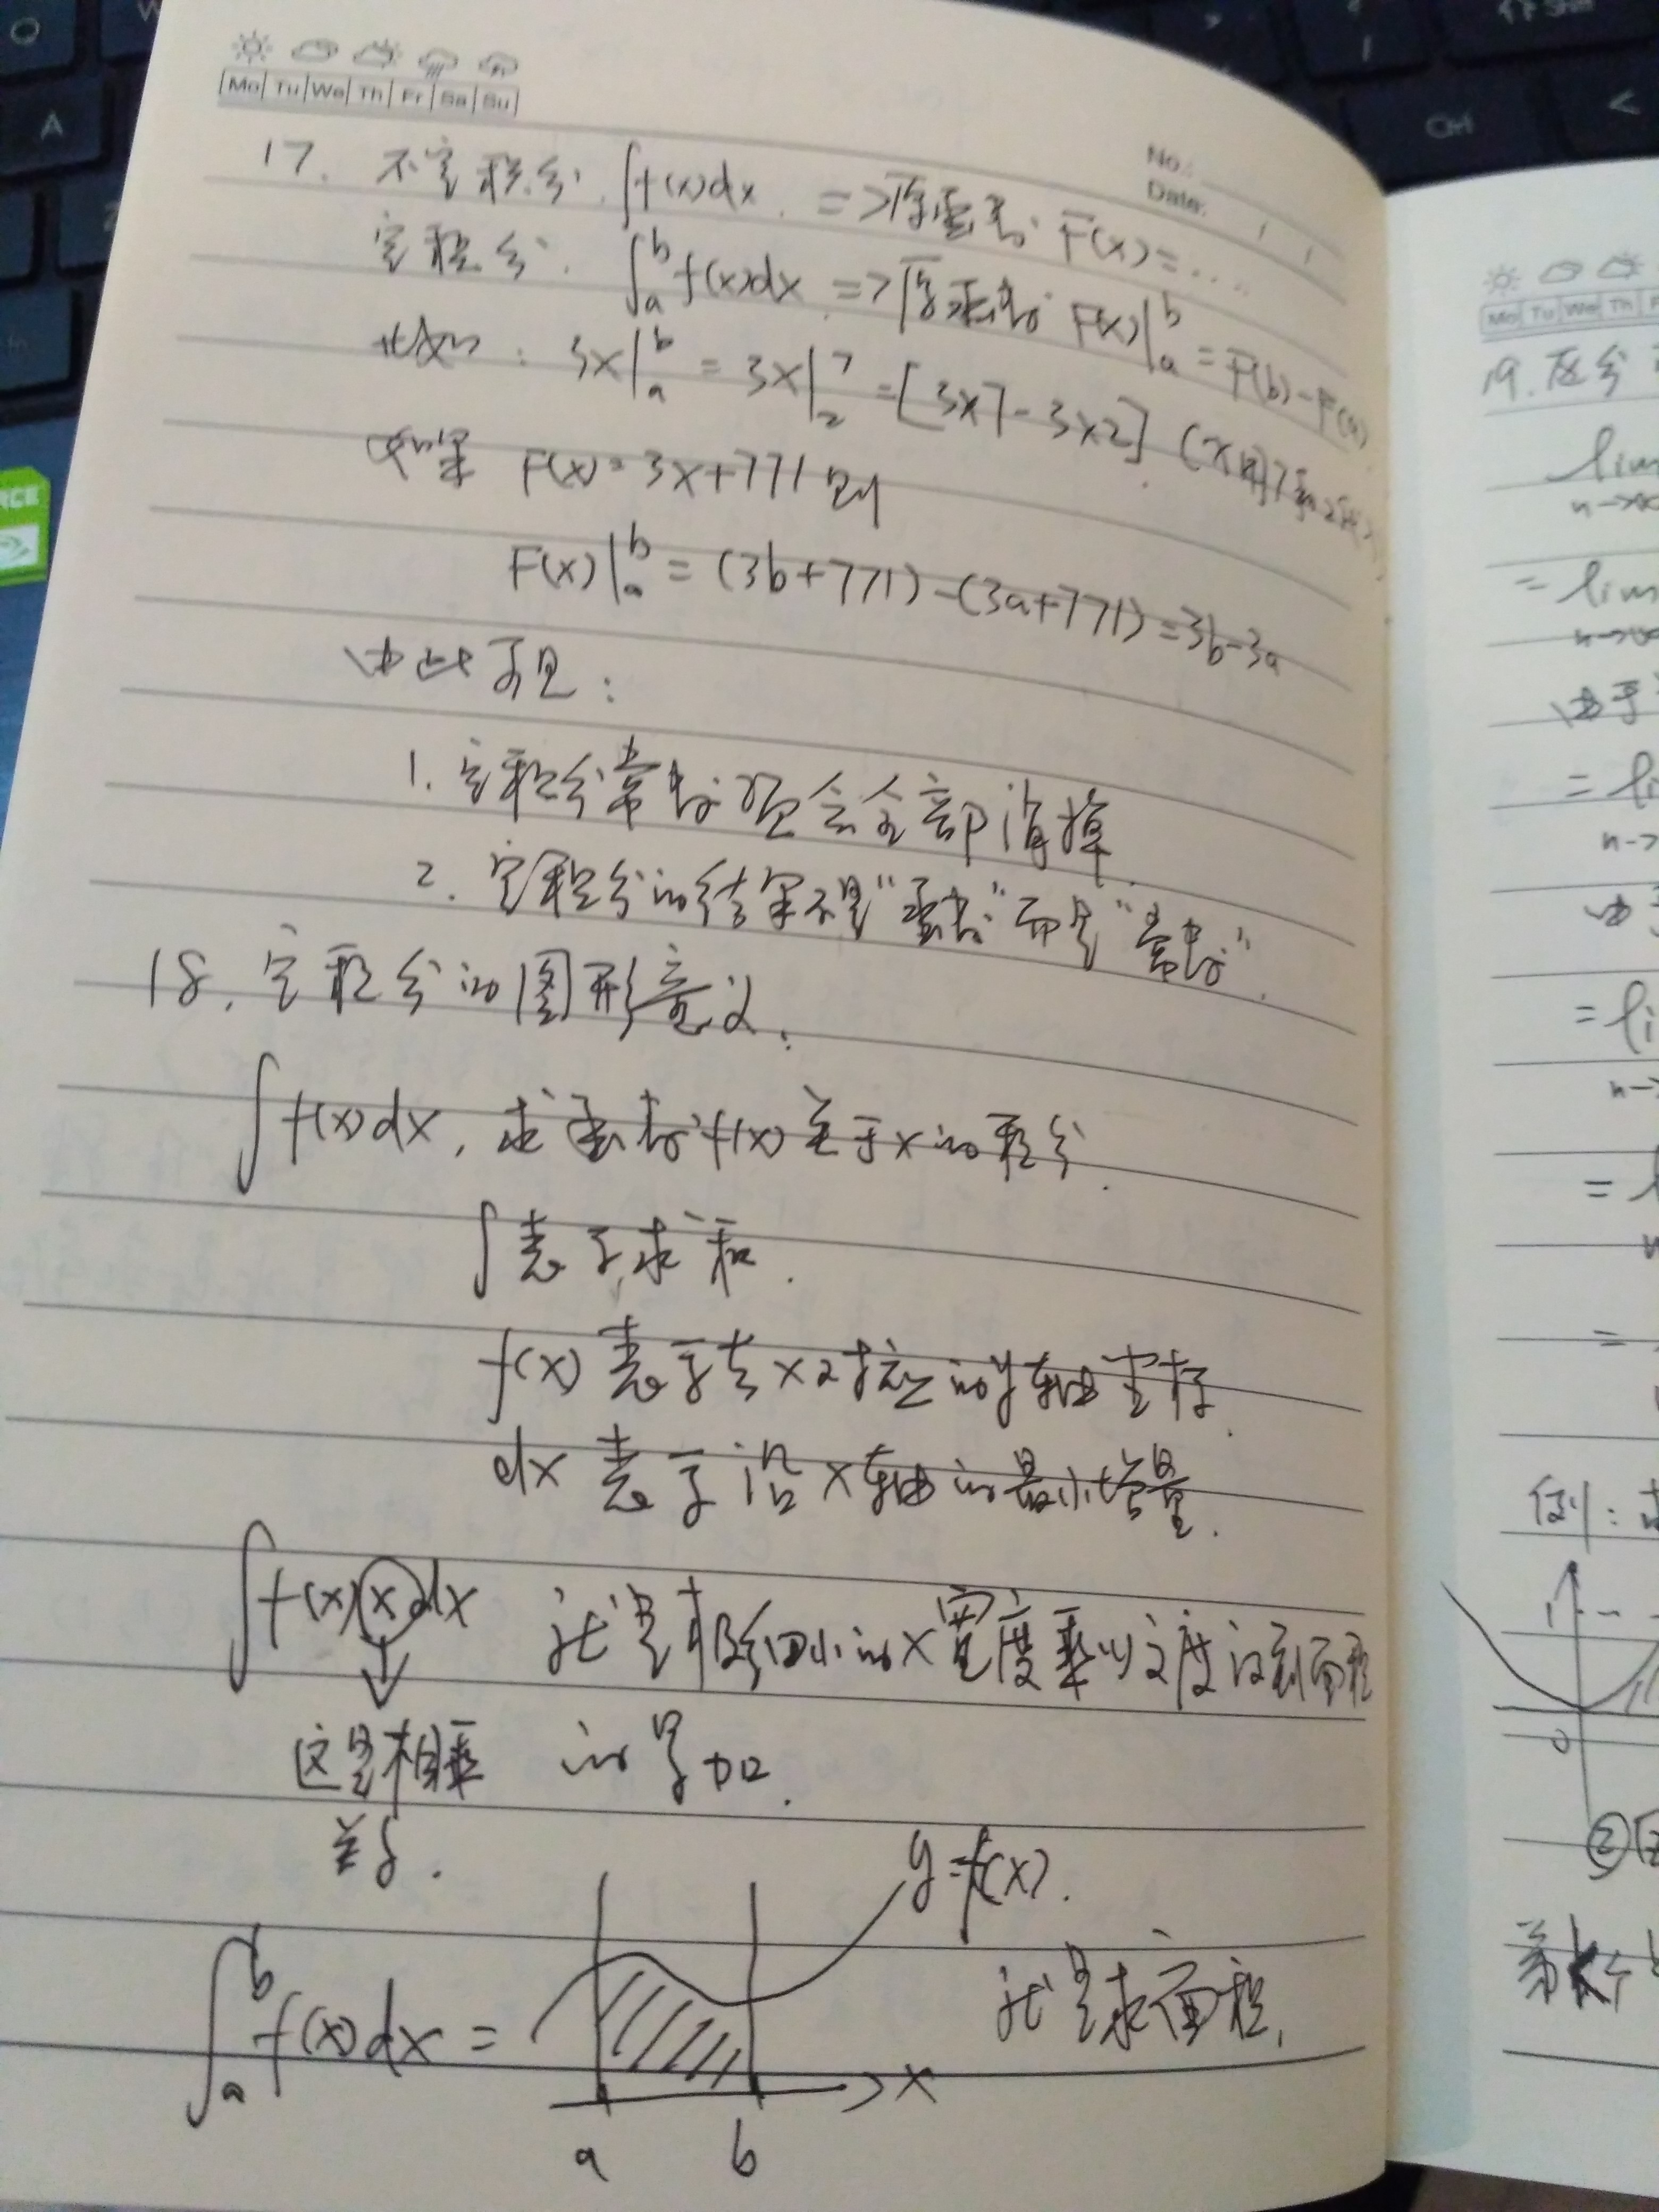 Mo Tu We Th Fr Sa Su
No.:
Date: / /
17. 不定积分. ∫f(x)dx. => 原函数 F(x)=....
定积分. ∫_a^b f(x)dx => 原函数 F(x)|_a^b = F(b)-F(a)
比如: 3x|_a^b = 3x|_2^7 = [3×7-3×2] (x用7和2代
如果 F(x)=3x+771 则
F(x)|_a^b = (3b+771)-(3a+771)=3b-3a
由此可见:
1. 定积分常数项会全部消掉.
2. 定积分的结果不是“函数”而是“常数”.
18. 定积分的图形意义.
∫f(x)dx, 求函数f(x)关于x的积分.
∫表示求和.
f(x) 表示与x对应的y轴坐标.
dx 表示沿x轴的最小增量.
∫f(x)×dx 就是极细小的x宽度乘以高度得到面积
这是相乘 的累加.
关系.
y=f(x).
∫_a^b f(x)dx = 就是求面积.
x
a b
Mo Tu We Th F
19. 区分
lim
n→∞
= lim
n→∞
由于
= li
n→
由于
= li
n→
=
=
例:
1
0
②
第k个